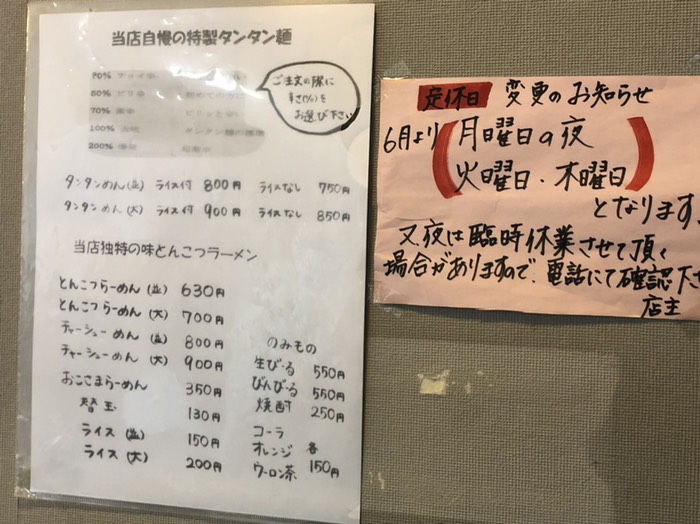 当店自慢の特製タンタン麺
20%
50%
70%
100%
200%
ご注文の際に
辛さ(%)を
お選び下さい
タンタンめん(並) ライス付 800円 ライスなし 750円
タンタンめん(大) ライス付 900円 ライスなし 850円
当店独特の味とんこつラーメン
とんこつらーめん(並) 630円
とんこつらーめん(大) 700円
チャーシューめん(並) 800円
チャーシューめん(大) 900円
おこさまらーめん 350円
替玉 130円
ライス(並) 150円
ライス(大) 200円
のみもの
生びーる 550円
びんびーる 550円
焼酎 250円
コーラ
オレンジ 各
ウーロン茶 150円
定休日 変更のお知らせ
6月より 月曜日の夜
火曜日・木曜日
となります。
又、夜は臨時休業させて頂く
場合がありますので、電話にて確認下さ
店主